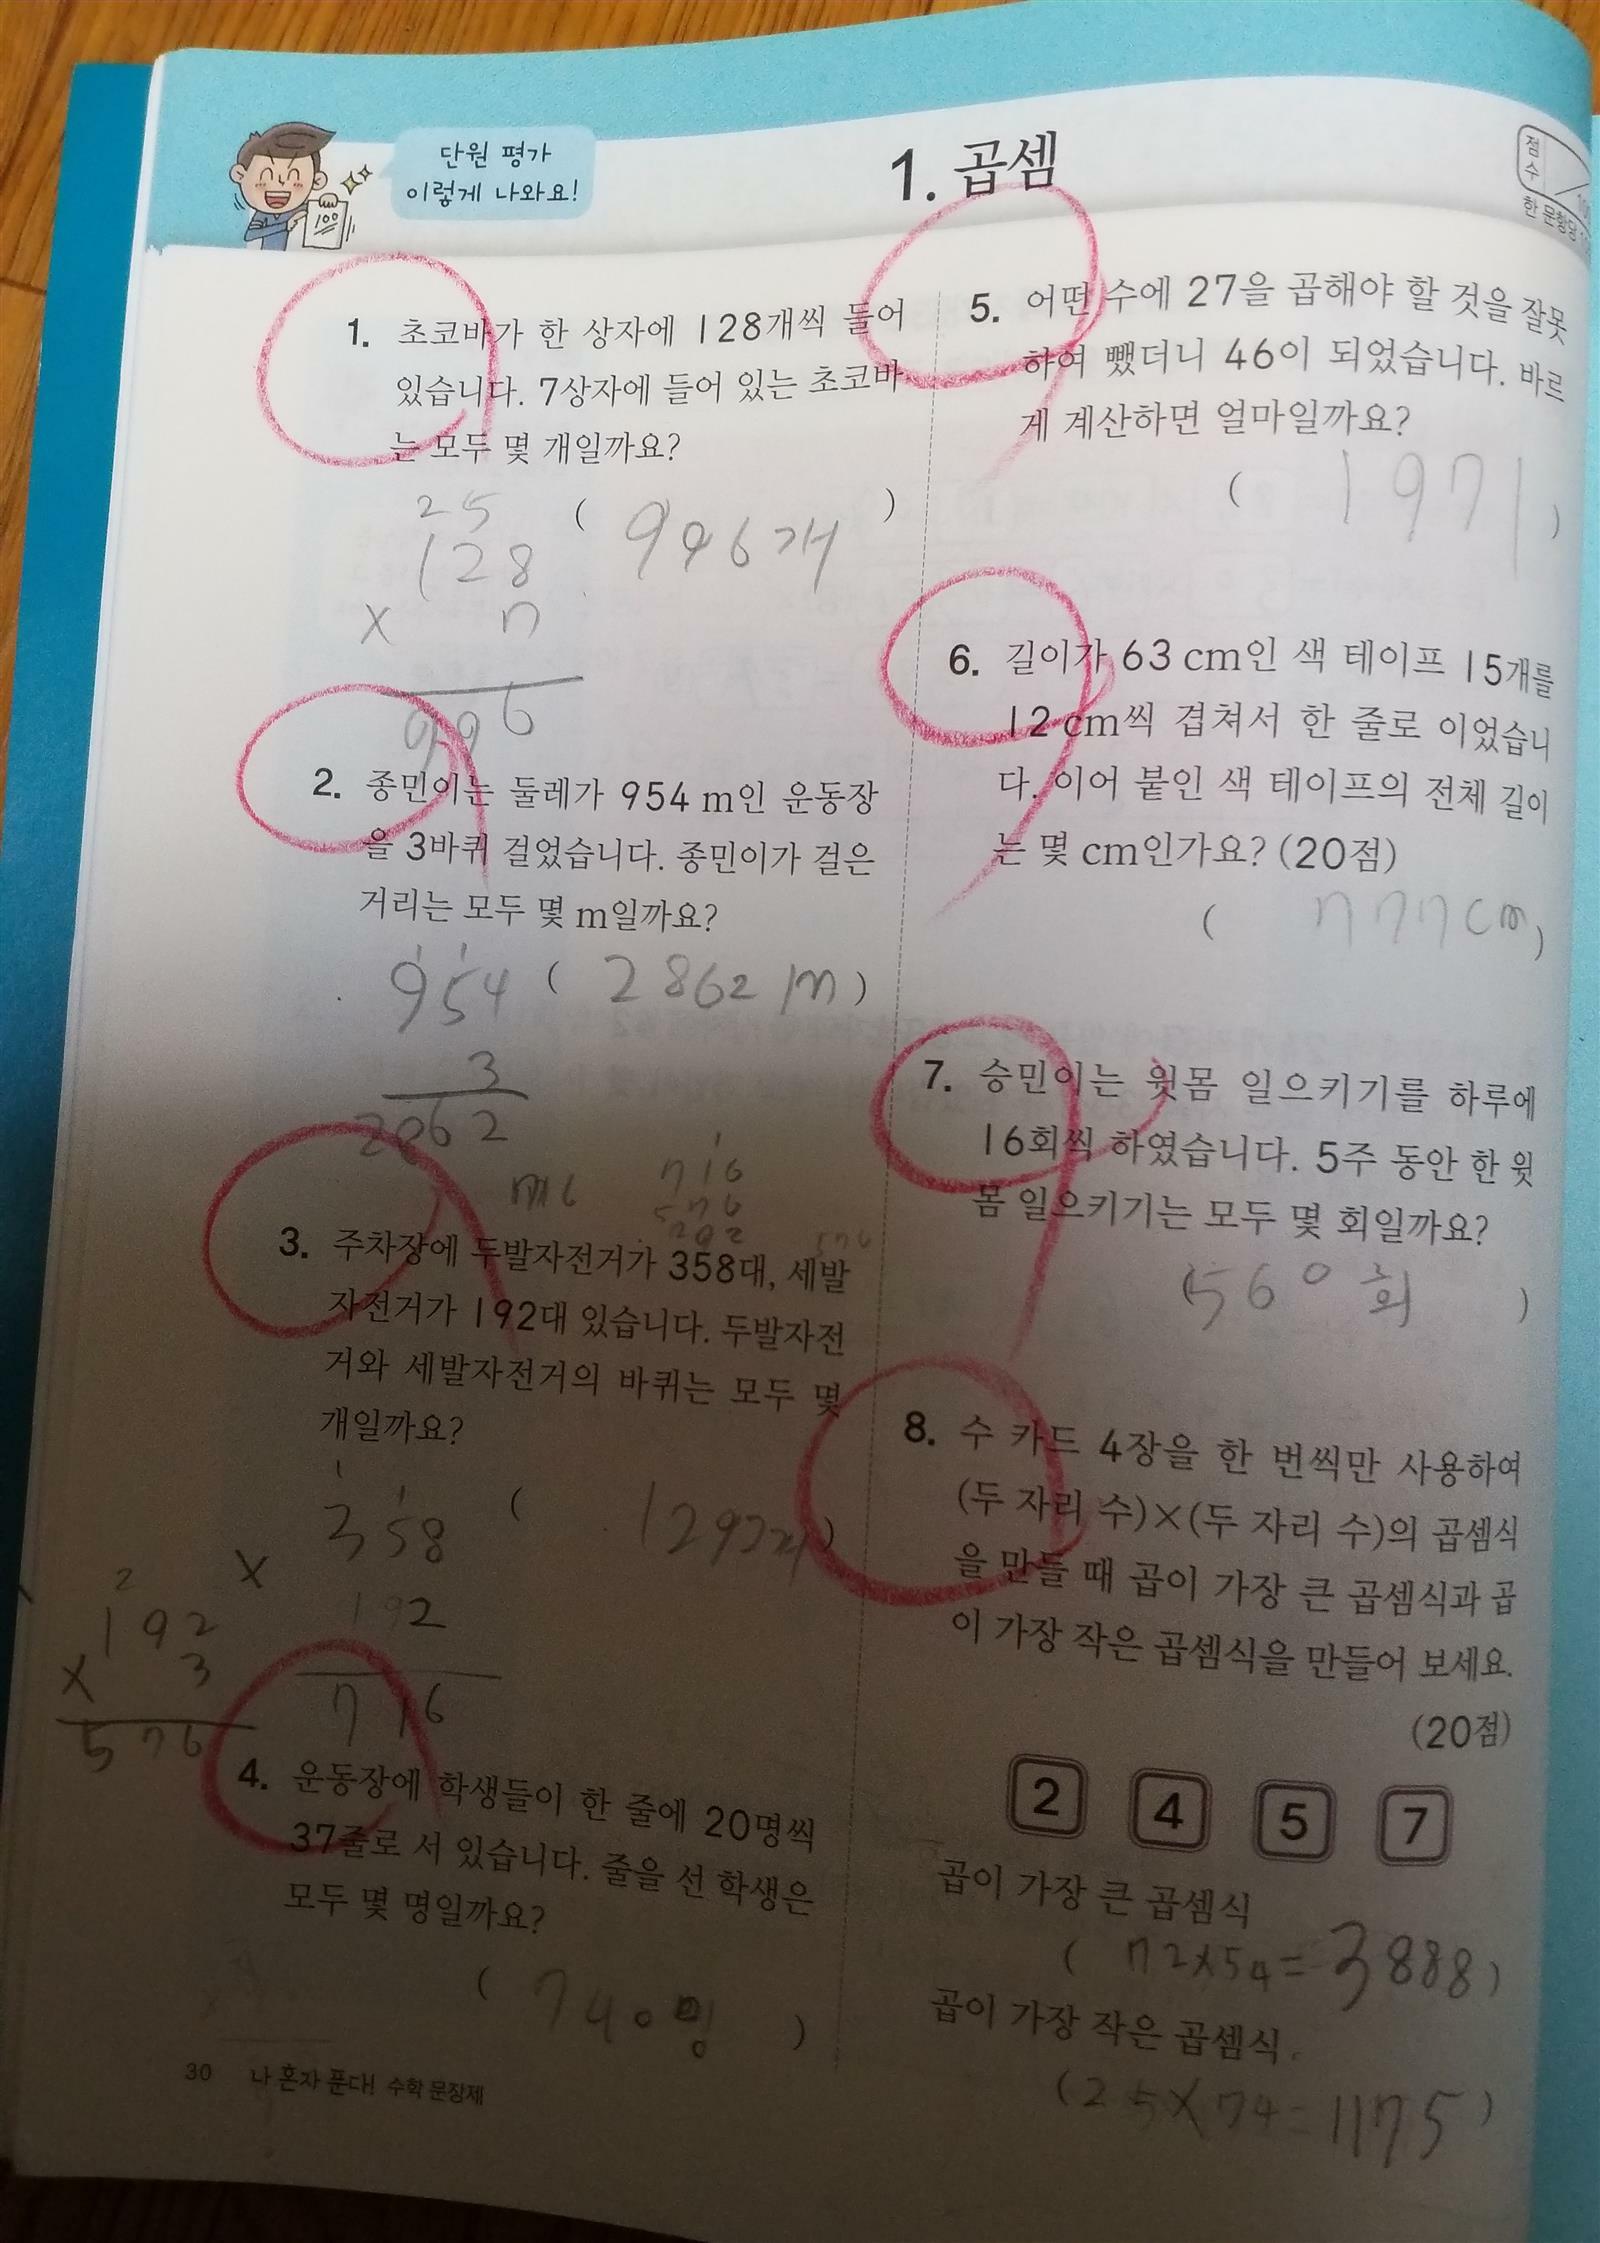 단원 평가
이렇게 나와요!
100
1. 곱셈
점
수
한 문항당
1. 초코바가 한 상자에 128개씩 들어
있습니다. 7상자에 들어 있는 초코바
는 모두 몇 개일까요?
25
128
( 996개 )
× 7
996
2. 종민이는 둘레가 954 m인 운동장
을 3바퀴 걸었습니다. 종민이가 걸은
거리는 모두 몇 m일까요?
1 1
954 ( 2862 m )
3
2862
1
716
576
3. 주차장에 두발자전거가 358대, 세발
자전거가 192대 있습니다. 두발자전
거와 세발자전거의 바퀴는 모두 몇
개일까요?
1 1
358
( 1292개 )
×
192
716
2
192
× 3
576
4. 운동장에 학생들이 한 줄에 20명씩
37줄로 서 있습니다. 줄을 선 학생은
모두 몇 명일까요?
( 740명 )
30 나 혼자 푼다! 수학 문장제
5. 어떤 수에 27을 곱해야 할 것을 잘못
하여 뺐더니 46이 되었습니다. 바르
게 계산하면 얼마일까요?
( 1971 )
6. 길이가 63 cm인 색 테이프 15개를
12 cm씩 겹쳐서 한 줄로 이었습니
다. 이어 붙인 색 테이프의 전체 길이
는 몇 cm인가요? (20점)
( 777cm )
7. 승민이는 윗몸 일으키기를 하루에
16회씩 하였습니다. 5주 동안 한 윗
몸 일으키기는 모두 몇 회일까요?
( 560회 )
8. 수 카드 4장을 한 번씩만 사용하여
(두 자리 수)×(두 자리 수)의 곱셈식
을 만들 때 곱이 가장 큰 곱셈식과 곱
이 가장 작은 곱셈식을 만들어 보세요.
(20점)
2 4 5 7
곱이 가장 큰 곱셈식
( 72×54=3888 )
곱이 가장 작은 곱셈식
( 25×74=1175 )